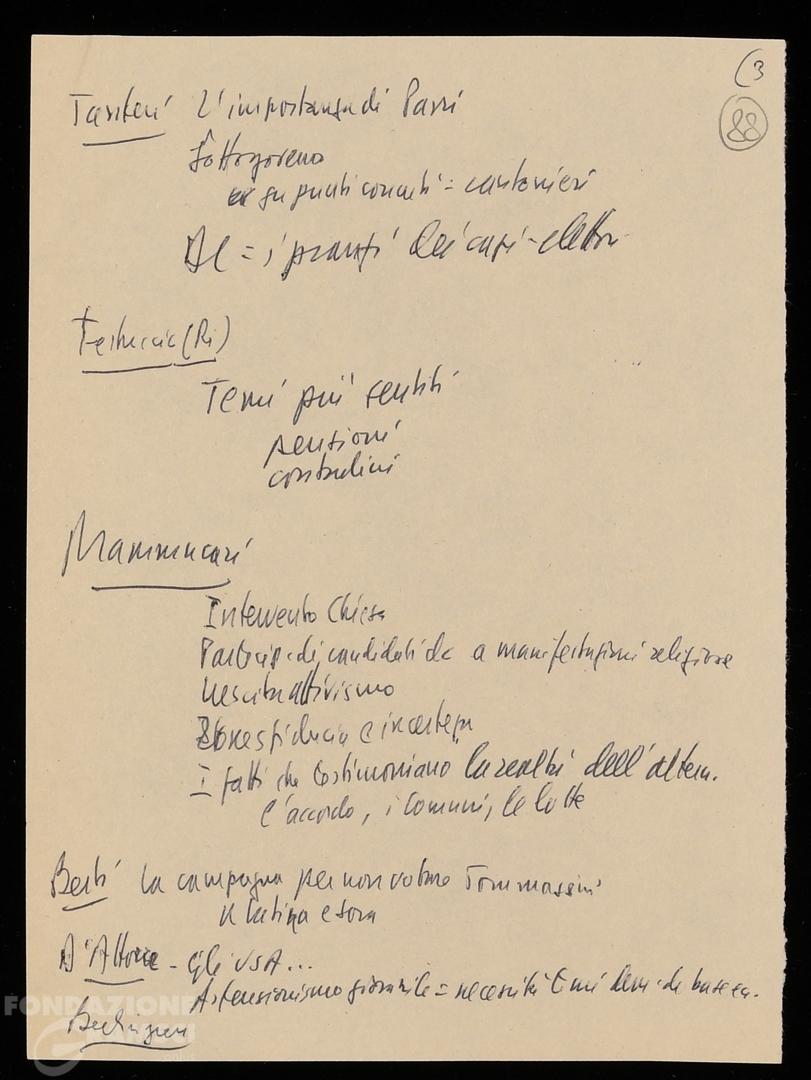 (3
88
L'importanza di Parri
Sottogoverno
su punti concreti = cantonieri
DC = i pranzi dei capi-elettori
Festuccia (Ri)
Temi più sentiti
pensioni
contadini
Mammucari
Intervento Chiesa
Partecip. di candidati dc a manifestazioni religiose
attivismo
sfiducia e incertezza
I fatti che testimoniano la realtà dell'altern.
l'accordo, i comuni, le lotte
Berti la campagna per non votare Tommassini
a Latina e Sora
D'Attorre - gli USA...
Astensionismo giovanile = necessità
Berlinguer
FONDAZIONE